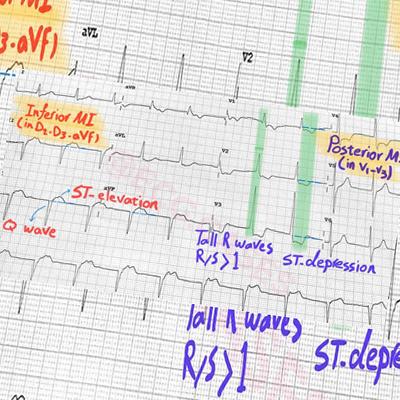 MI
3.aVf)
aVL
V2
Inferior MI
(in D2-D3-aVf)
aVR
V1
V4
aVL
V2
V5
Posterior M
(in V1-V3)
aVF
V3
V6
ST-elevation
Q wave
Tall R waves
R/S>1
ST-depression
Tall R waves
R/S>1
ST-depre